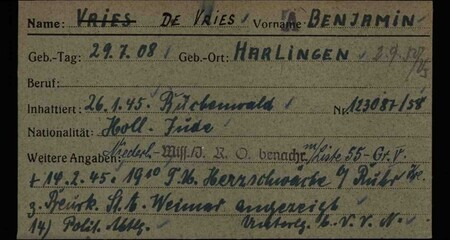 Name: VRIES DE VRIES Vorname BENJAMIN
Geb.-Tag: 29.7.08 Geb.-Ort: HARLINGEN
Beruf:
Inhaftiert: 26.1.45. Buchenwald Nr. 123087/58
Nationalität: Holl. Jude
Weitere Angaben: Niederl.-Miss./I. R. O. benachr. m/Liste 55-Gr. V.
+ 14.2.45. 19¹⁰ T.b. Herzschwäche b/ Ruhr
z. Beurk. St. A. Weimar angezeigt
14) Polit. Abtlg. V. V. N.